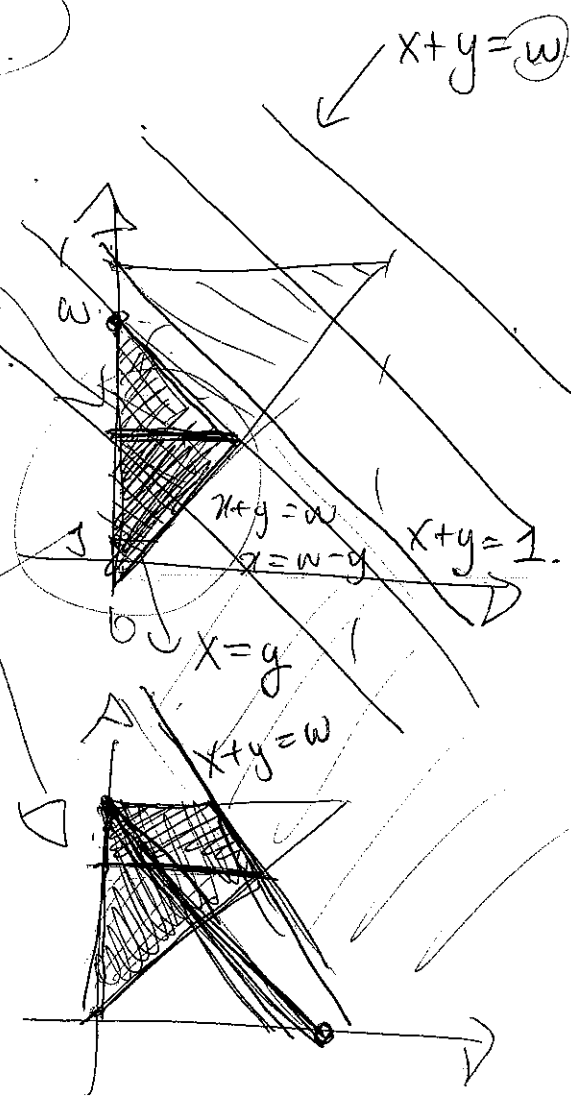 x+y=w
w
x+y=w
x=w-y
x+y=1.
0
x=y
x+y=w